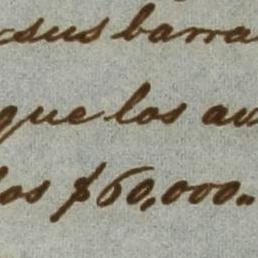 sus barra
que los au
los $60,000..